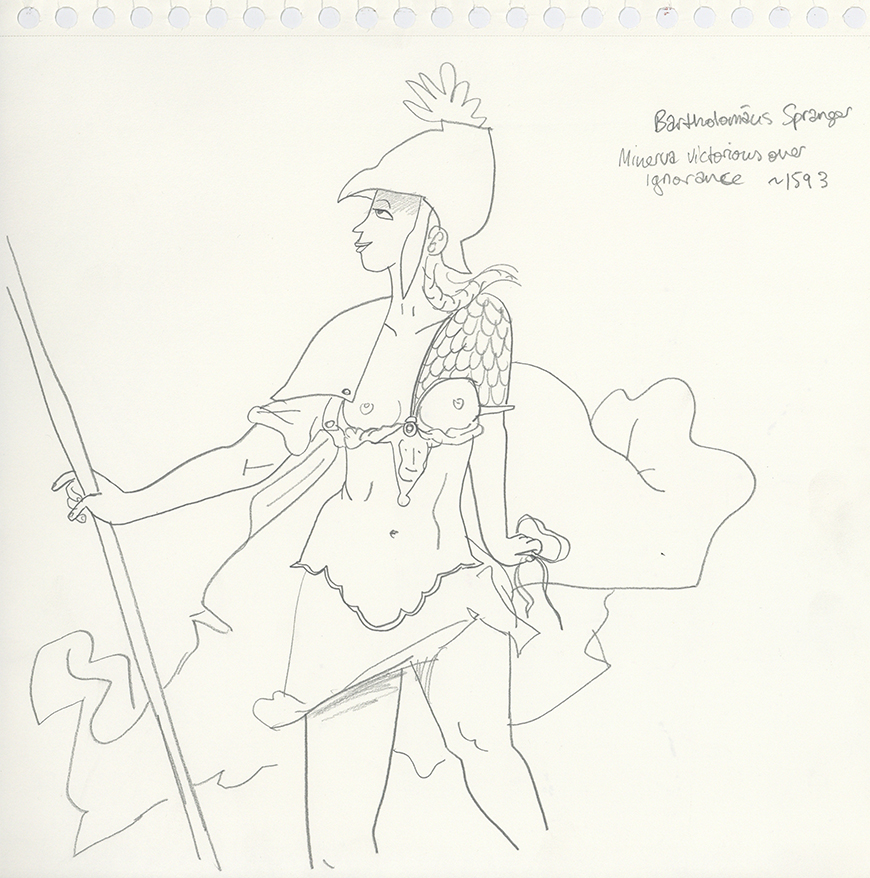 Bartholomäus Spranger
Minerva victorious over
Ignorance ~1593